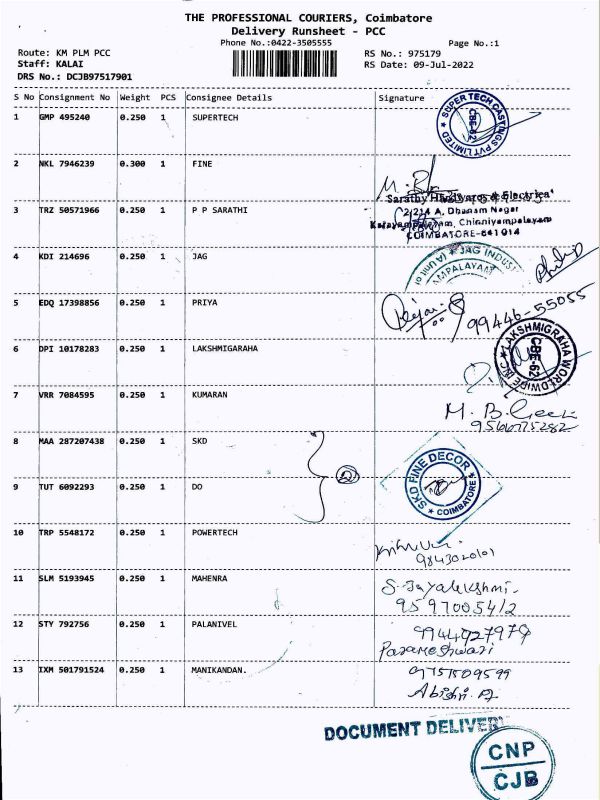 THE PROFESSIONAL COURIERS, Coimbatore
Delivery Runsheet - PCC
Phone No.:0422-3505555
Page No.:1
Route: KM PLM PCC
RS No.: 975179
Staff: KALAI
RS Date: 09-Jul-2022
DRS No.: DCJB97517901
S No Consignment No Weight PCS Consignee Details Signature
1 GMP 495240 0.250 1 SUPERTECH
SUPER TECH CASTINGS PVT LIMITED
CBE-62
2 NKL 7946239 0.300 1 FINE
3 TRZ 50571966 0.250 1 P P SARATHI
Sarathy Hardwares & Electrical
2/214 A, Dhanam Nagar
Kalayampalayam, Chinniyampalayam
COIMBATORE-641014
4 KDI 214696 0.250 1 JAG
(A Unit of JAG INDUST
AMPALAYAM
Philip
5 EDQ 17398856 0.250 1 PRIYA
99446-55055
6 DPI 10178283 0.250 1 LAKSHMIGARAHA
LAKSHMIGRAHA WORLDWIDE INC
CBE-62
7 VRR 7084595 0.250 1 KUMARAN
M. B.
9566775282
8 MAA 287207438 0.250 1 SKD
2
SKD FINE DECOR
COIMBATORE
9 TUT 6092293 0.250 1 DO
10 TRP 5548172 0.250 1 POWERTECH
9843020101
11 SLM 5193945 0.250 1 MAHENRA
S. Jayalekshmi.
9597005412
12 STY 792756 0.250 1 PALANIVEL
9944927979
Parameshwari
13 IXM 501791524 0.250 1 MANIKANDAN.
9751509599
DOCUMENT DELIVER
CNP
CJB